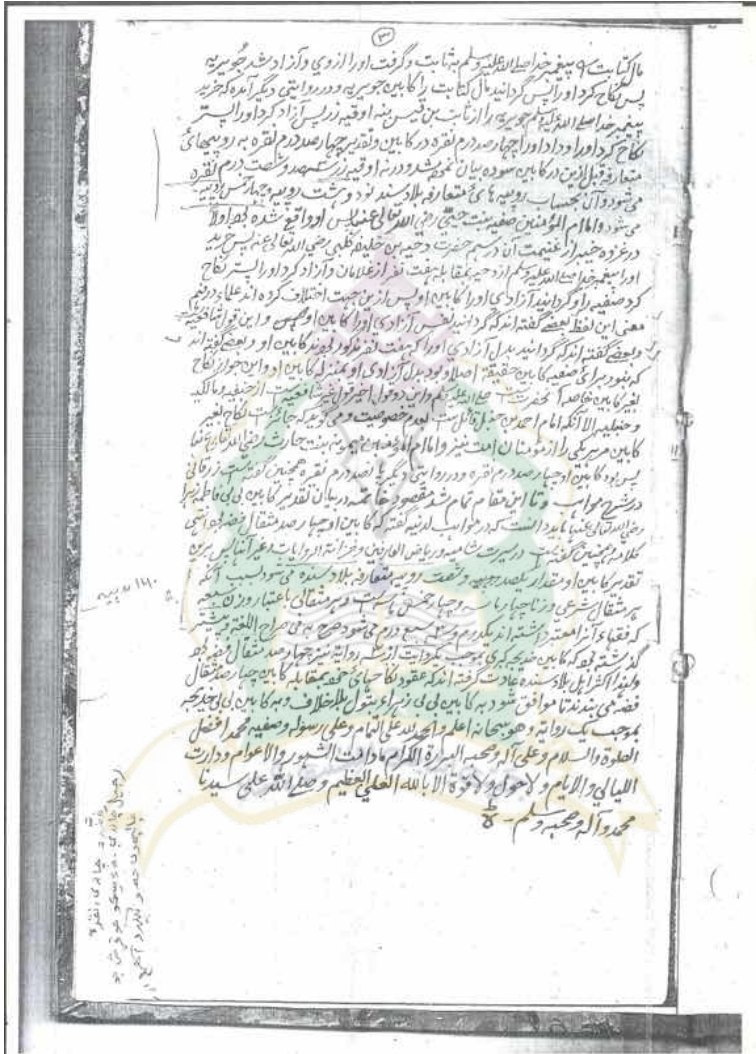 ۳
مال کتابت به پیغمبر خدا صلی الله علیه وسلم به ثابت و گرفت او را از وی و آزاد شد جویریه
پس نکاح کرد او را پس گردانید مال کتابت را کابین جویریه و در روایتی دیگر آمده که خرید
پیغمبر خدا صلی الله علیه وسلم جویریه را از ثابت بن قیس بنه اوقیه زر پس آزاد کرد او را پستر
نکاح کرد او را و داد او را چهار صد درم نقره در کابین و تقدیر چهار صد درم نقره به روپیهائ
متعارفه قبل ازین در کابین سوده بیان نموده شد و در نه اوقیه زر سه صد و شصت درم نقره
می شود و آن بحساب روپیه های متعارفه بلاد سند نود و شت روپیه و چهار خمس روپیه
می شود و اما ام المؤمنین صفیه بنت حیی رضی الله تعالی عنها پس او واقع شده بود اولا
در غزوه خیبر از غنیمت آن در سهم حضرت دحیه بن خلیفه کلبی رضی الله تعالی عنه پس خرید
او را پیغمبر خدا صلی الله علیه وسلم از دحیه بمقابله هفت نفر از غلامان و آزاد کرد او را پستر نکاح
کرد صفیه را و گردانید آزادی او را کابین او پس ازین جهت اختلاف کرده اند علماء در فهم
معنی این لفظ بعضی گفته اند که گردانید نفس آزادی او را کابین او و این قول شافعیه
و بعضی گفته اند که گردانید بدل آزادی او را که هفت نفر بودند کابین او و بعضی گفته اند
که نبود برای صفیه کابین حقیقة اصلا و بود بدل آزادی او بمنزله کابین او و این جواز نکاح
بغیر کابین خاصه آنحضرت صلی الله علیه وسلم و این دو قول اخیر قول غیر شافعیه است از حنفیه و مالکیه
و حنبلیه الا آنکه امام احمد بن حنبل قائل است بعدم خصوصیت و می گوید که جائز است نکاح بغیر
کابین هر یکی را از مؤمنان امت نیز و اما ام المؤمنین میمونه بنت حارث رضی الله تعالی عنها
پس بود کابین او چهار صد درم نقره و در روایتی دیگر پانصد درم نقره همچنین گفته است زرقانی
در شرح مواهب و تا این مقام تمام شد مقصود خاتمه در بیان تقدیر کابین بی بی فاطمه زهرا
رضی الله تعالی عنها باید دانست که در مواهب لدنیه گفته که کابین او چهار صد مثقال فضه بود انتهی
کلامه و همچنین گفته است در سیرت شامیه و ریاض العارفین و خزانة الروایات و غیر آنها پس برین
تقدیر کابین او مقدار یکصد و شصت روپیه متعارفه بلاد سنده می شود بسبب آنکه
هر مثقال شرعی وزنا چهار ماسه و چهار خمس ماسه است و هر مثقالی باعتبار وزن سبعه
که فقهاء آنرا معتبر داشته اند یکدرم و سه سبع درم می شود صرح به فی صراح اللغة و پیشتر
گذشته بود که کابین خدیجه کبری بموجب یکروایت از سه روایه نیز چهار صد مثقال فضه بود
ولهذا اکثر اهل بلاد سنده عادت گرفته اند که عقود نکاحهای خود بمقابله کابین چهار صد مثقال
فضه می بندند تا موافق شود به کابین بی بی زهراء بتول بلا خلاف و به کابین بی بی خدیجه
بموجب یک روایة و هو سبحانه اعلم والحمد لله علی التمام وعلی رسوله وصفیه محمد افضل
الصلوة والسلام وعلی آله وصحبه البررة الکرام مادامت الشهور والاعوام ودارت
اللیالی والایام ولا حول ولا قوة الا بالله العلی العظیم وصلی الله علی سیدنا
محمد وآله وصحبه وسلم